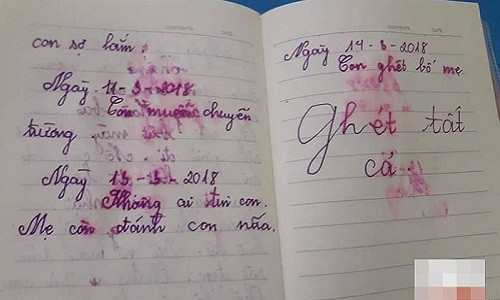 con sợ lắm.
Ngày 11-3-2018
Con muốn chuyển
trường.
Ngày 13-3-2018
Không ai tin con.
Mẹ còn đánh con nữa.
CONTENTS DATE
Ngày 14-3-2018
Con ghét bố mẹ
Ghét tất
cả